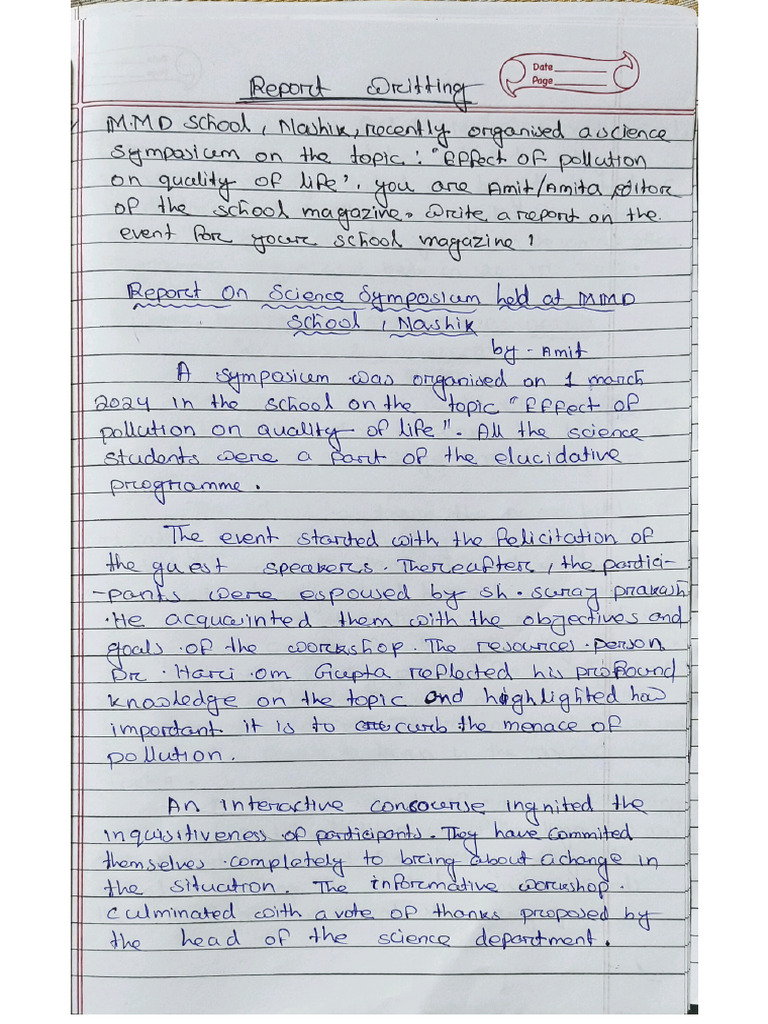 Date
Page
Report Writting
M.MD School, Nashik, recently organised a science
Symposium on the topic : "Effect of pollution
on quality of life'. you are Amit/Amita Editor
of the school magazine. Write a report on the
event for your school magazine !
Report On Science Symposium held at MMD
School, Nashik
by - Amit
A symposium was organised on 1 march
2024 in the school on the topic "Effect of
pollution on quality of life". All the science
students were a part of the elucidative
programme.
The event started with the felicitation of
the guest speakers. Thereafter, the partici-
-pants were espoused by sh. suraj prakash
.He acquainted them with the objectives and
goals of the workshop. The resources person
Dr. Hari om Gupta reflected his profound
knowledge on the topic and highlighted how
important it is to curb the menace of
pollution.
An interactive concourse ingnited the
inquisitiveness of participants. They have commited
themselves completely to bring about a change in
the situation. The informative workshop.
culminated with a vote of thanks proposed by
the head of the science department.